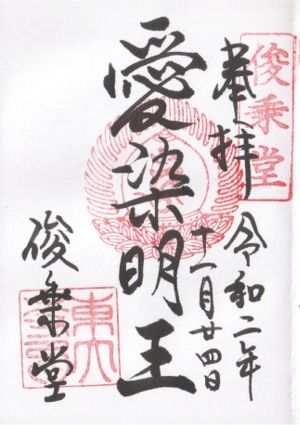 俊乗堂
奉拝
令和二年
十一月廿四日
愛染明王
俊乗堂